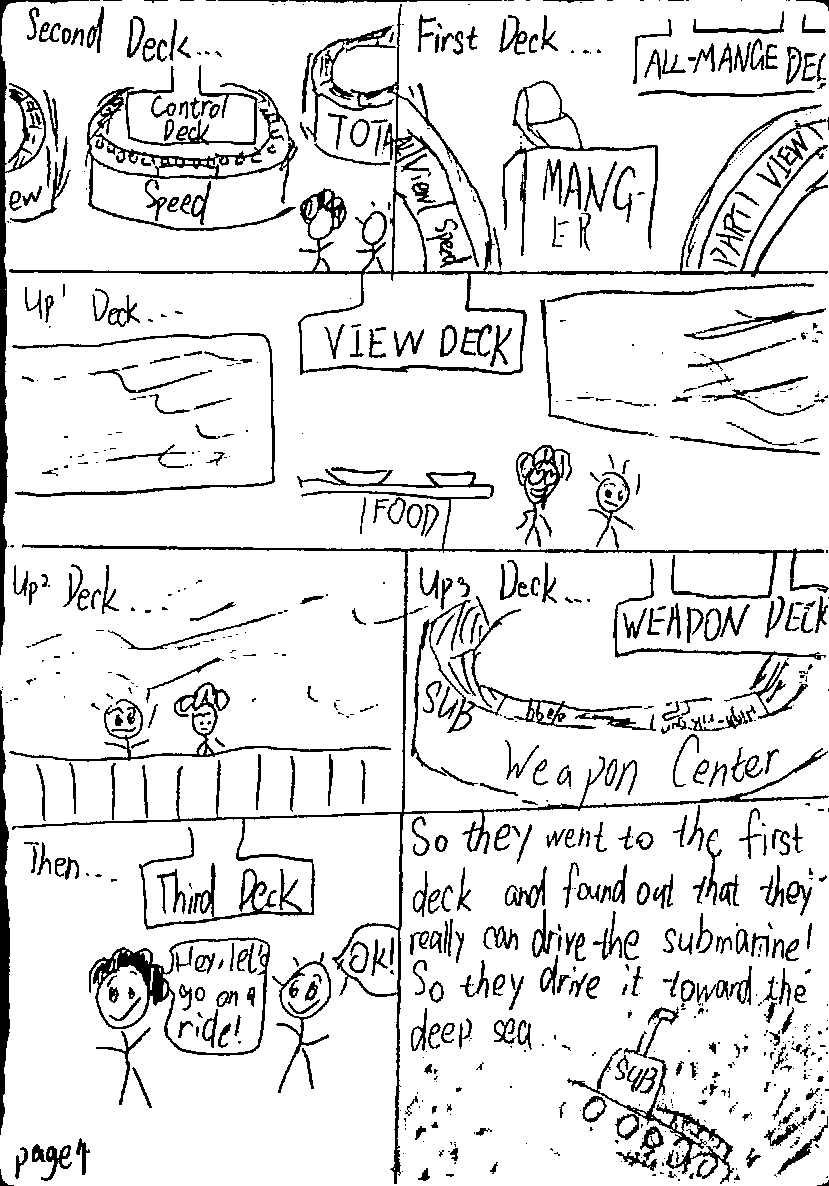 Second Deck...
Control
Deck
ew
Speed
TOTA
First Deck...
ALL-MANGE DEC
All View Speed
MANG-
ER
PART VIEW
Up¹ Deck....
VIEW DECK
FOOD
Up² Deck....
Up³ Deck...
WEAPON DECK
SUB
Weapon Center
Then...
Third Deck
Hey, let's
go on a
ride!
OK!
So they went to the first
deck and found out that they
really can drive the submarine!
So they drive it toward the
deep sea...
SUB
page 4